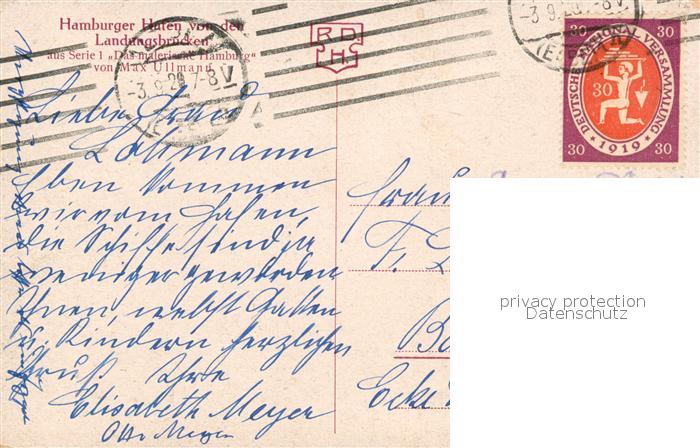 Hamburger Hafen von den
Landungsbrücken
aus Serie 1 „Das malerische Hamburg“
von Max Ullmann
RD
H
-3.9.20.7-8V
-3.9.20.-8V
30 30
DEUTSCHE NATIONALVERSAMMLUNG
30
* 1919 *
30 30
Liebe Frau
Lollmann
Eben kommen
wir vom Hafen,
die Schiffe sind ja
weniger geworden
Ihnen, nebst Gatten
u. Kindern herzlichen
Gruß Ihre
Elisabeth Meyer
Otto Meyer
Frau
F.
Ecke
privacy protection
Datenschutz